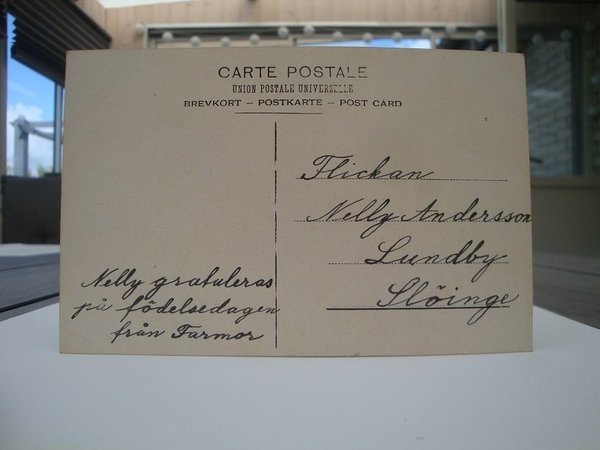 CARTE POSTALE
UNION POSTALE UNIVERSELLE
BREVKORT – POSTKARTE – POST CARD
Flickan
Nelly Andersson
Lundby
Slöinge
Nelly gratuleras
på födelsedagen
från Farmor